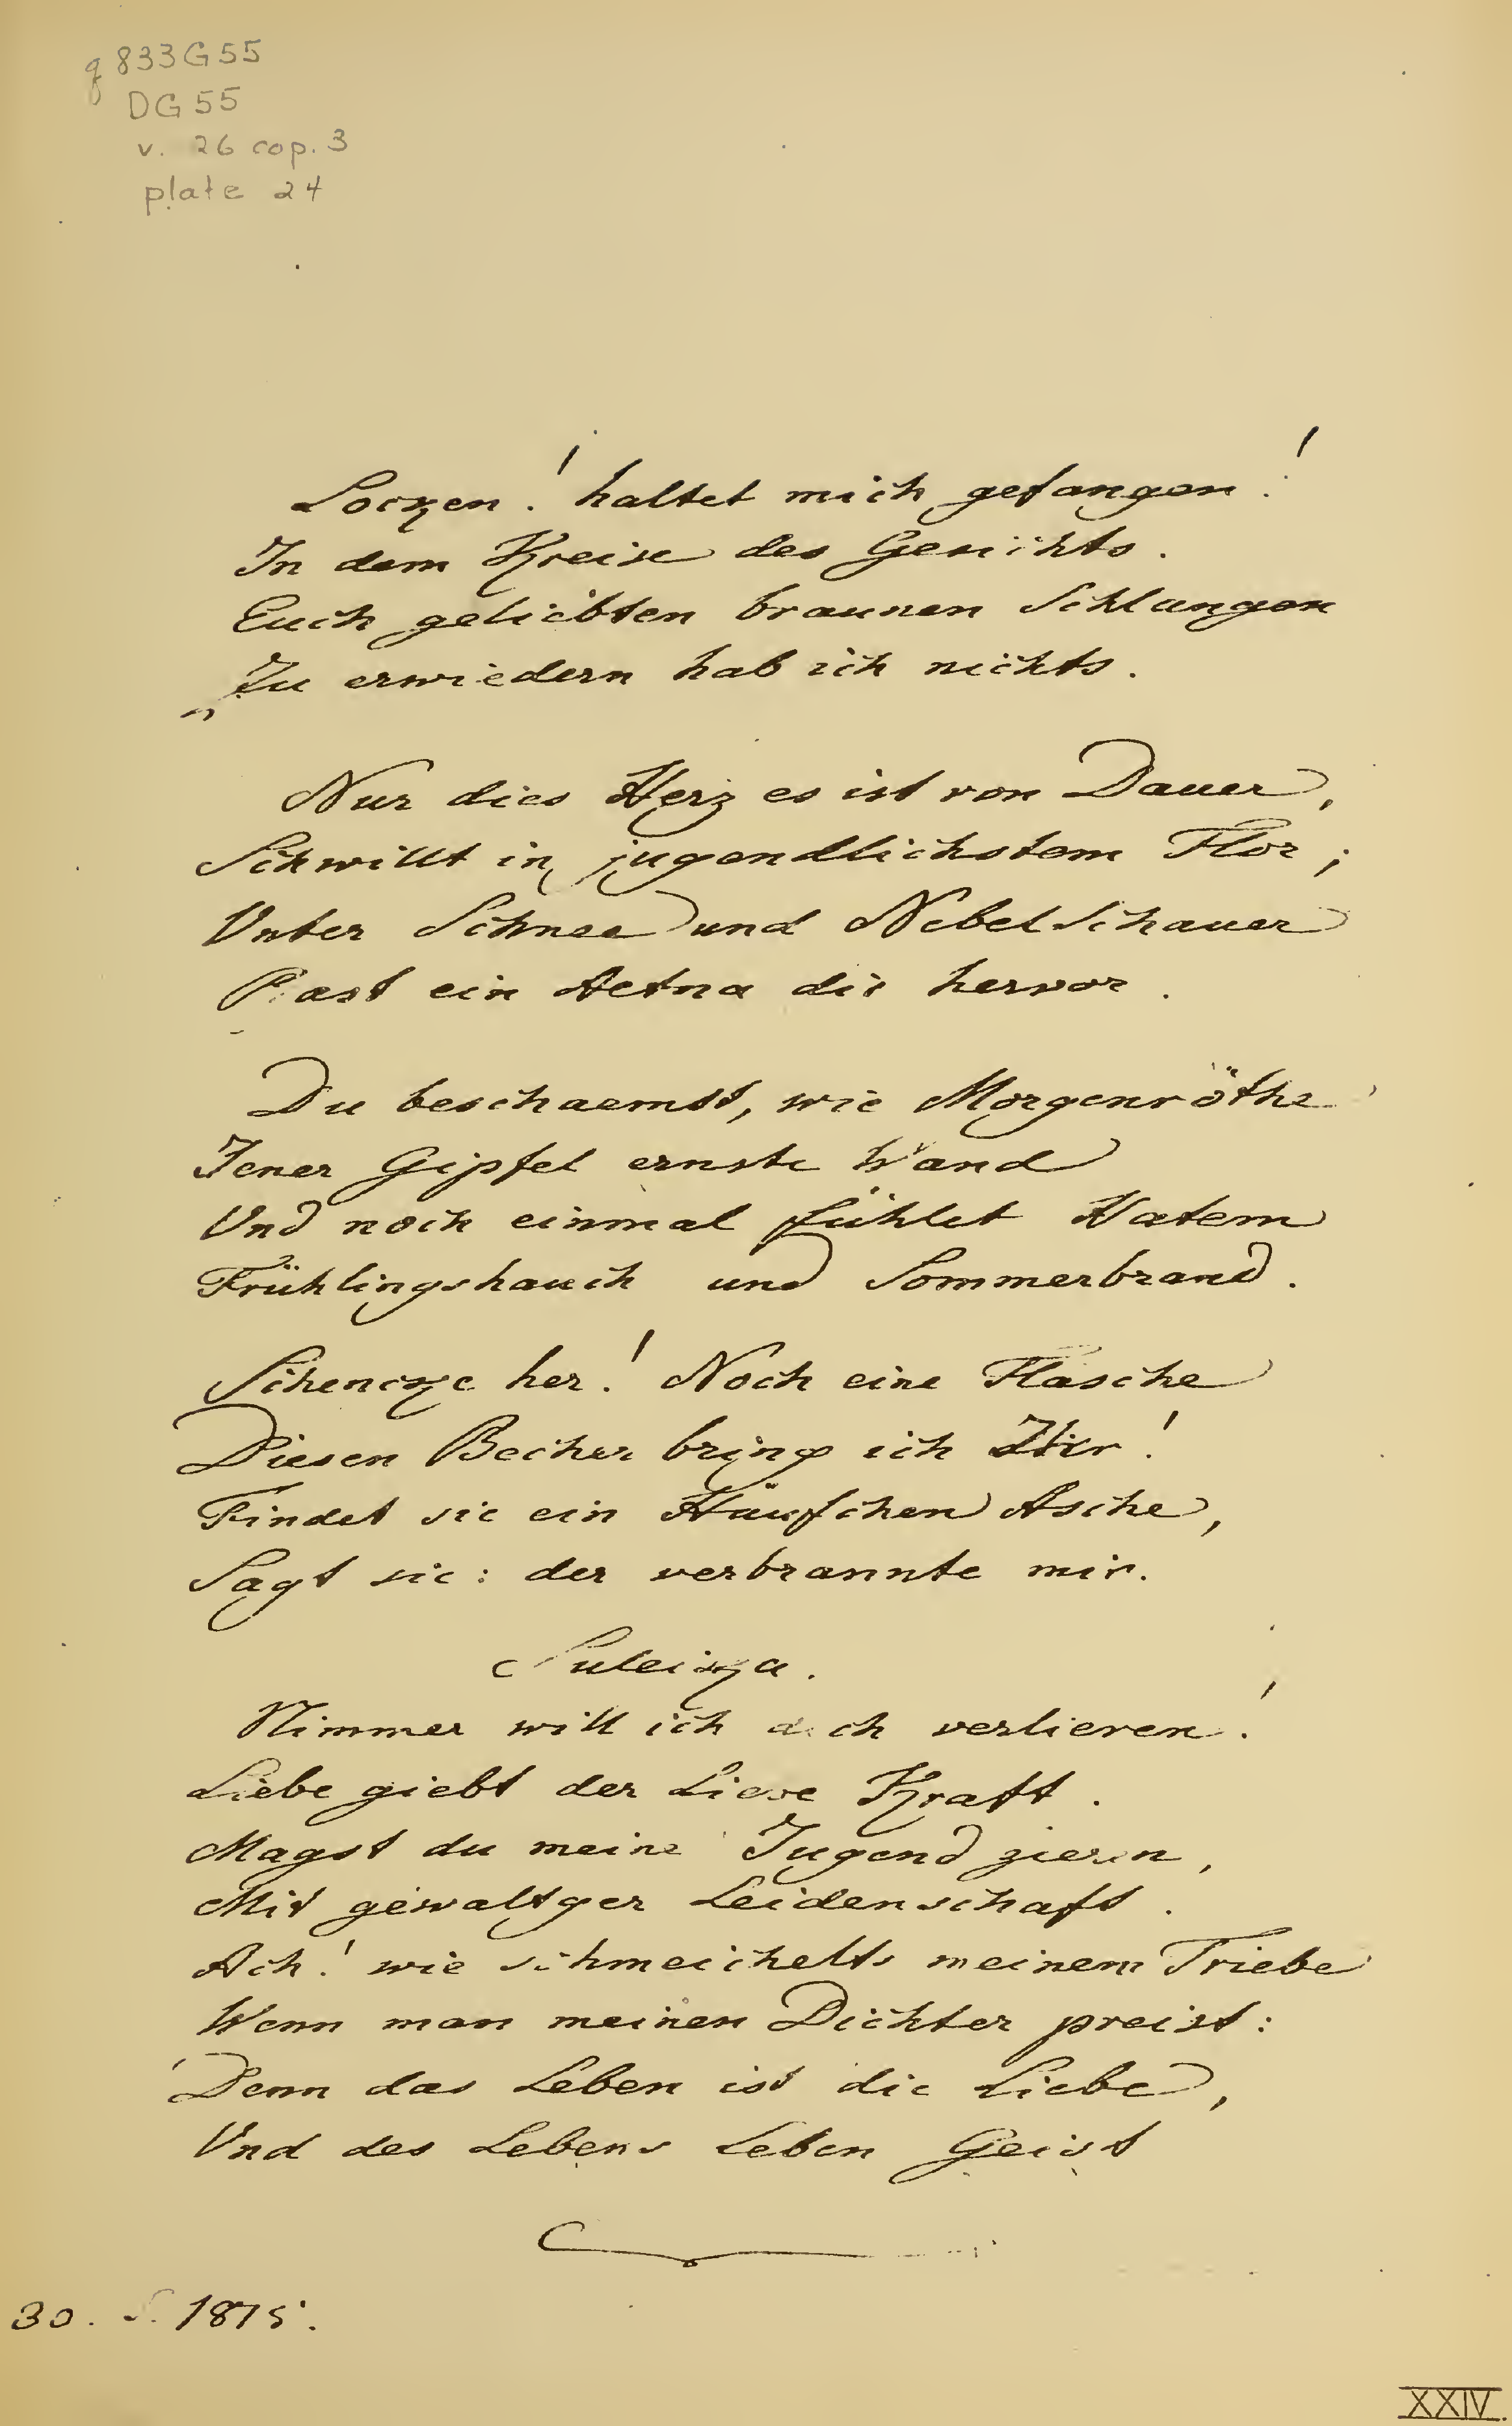 q 833G55
DG55
v. 26 cop. 3
plate 24
Locken! haltet mich gefangen!
In dem Kreise des Gesichts.
Euch geliebten braunen Schlangen
Zu erwiedern hab ich nichts.
Nur dies Herz es ist von Dauer,
Schwillt in jugendlichstem Flor;
Unter Schnee und Nebelschauer
Rast ein Aetna dir hervor.
Du beschaemst, wie Morgenröthe
Jener Gipfel ernste Wand
Und noch einmal fühlet Hatem
Frühlingshauch und Sommerbrand.
Schencke her! Noch eine Flasche
Diesen Becher bring ich Ihr!
Findet sie ein Häufchen Asche,
Sagt sie: der verbrannte mir.
Suleika.
Nimmer will ich dich verlieren!
Liebe giebt der Liebe Kraft.
Magst du meine Jugend zieren,
Mit gewaltger Leidenschaft.
Ach! wie schmeichelts meinem Triebe
Wenn man meinen Dichter preist:
Denn das Leben ist die Liebe,
Und des Lebens Leben Geist
30. S. 1815.
XXIV.